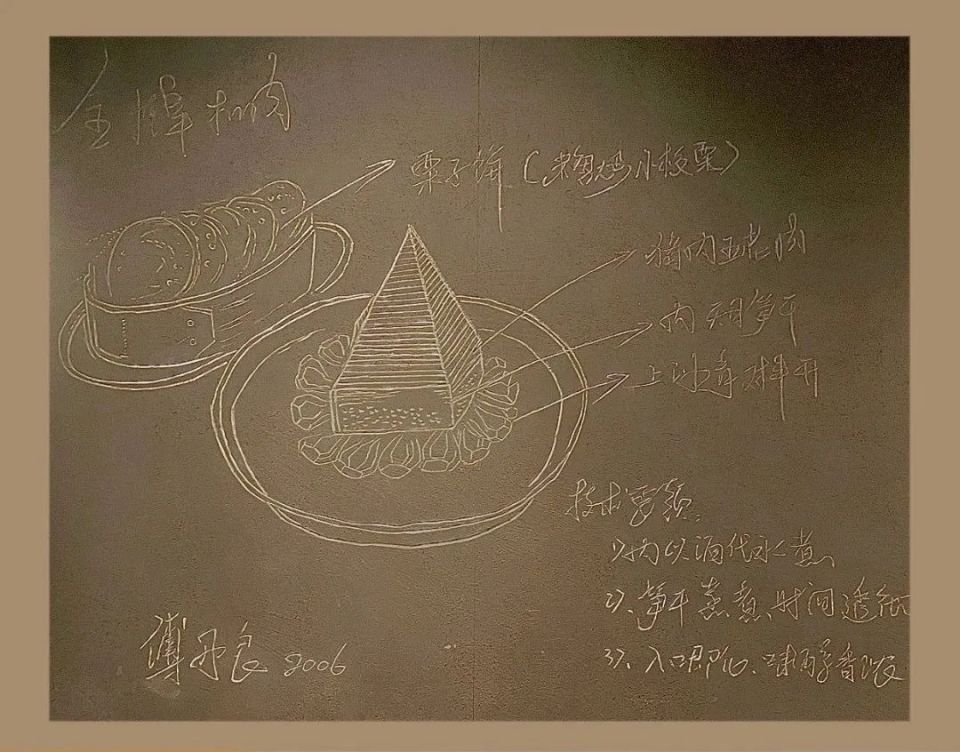 金牌扣肉
栗子饼（小板栗）
猪肉五花肉
内天目笋干
上 对半开
技术要领：
1、肉以酒代水煮、
2、笋干蒸煮、时间透彻
3、入口即化、味醇香浓
傅月良 2006